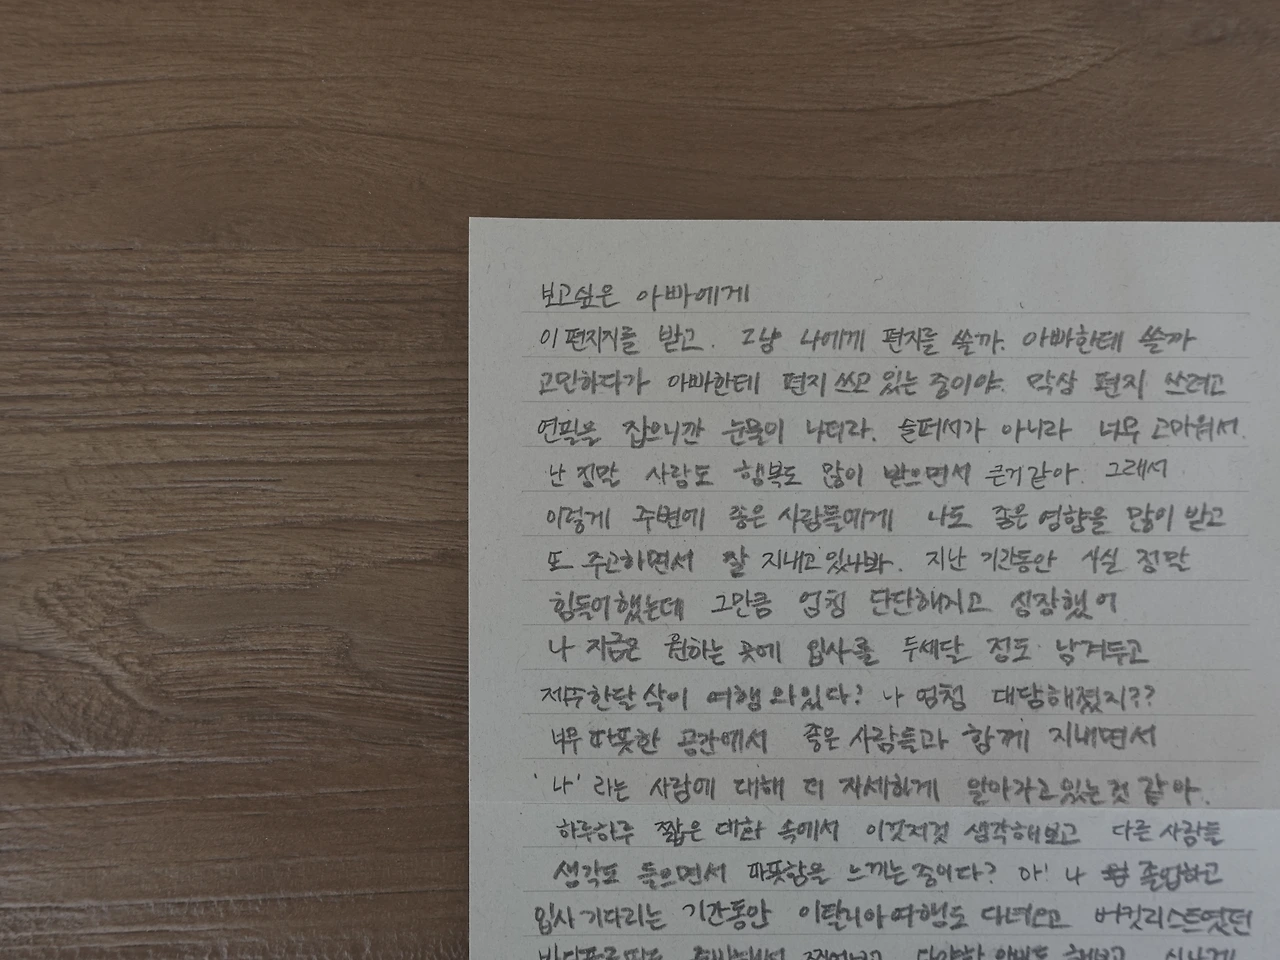 보고싶은 아빠에게
이 편지지를 받고. 그냥 나에게 편지를 쓸까. 아빠한테 쓸까
고민하다가 아빠한테 편지 쓰고 있는 중이야. 막상 편지 쓰려고
연필을 잡으니깐 눈물이 나더라. 슬퍼서가 아니라 너무 고마워서.
난 정말 사랑도 행복도 많이 받으면서 큰거 같아. 그래서
이렇게 주변에 좋은 사람들에게 나도 좋은 영향을 많이 받고
또 주고하면서 잘 지내고 있나봐. 지난 기간동안 사실 정말
힘들어했는데 그만큼 엄청 단단해지고 성장했어
나 지금은 원하는 곳에 입사를 두세달 정도 남겨두고
제주한달살이 여행 와있다? 나 엄청 대담해졌지??
너무 따뜻한 공간에서 좋은 사람들과 함께 지내면서
'나' 라는 사람에 대해 더 자세하게 알아가고 있는 것 같아.
하루하루 짧은 대화 속에서 이것저것 생각해보고 다른 사람들
생각도 들으면서 따뜻함을 느끼는 중이다? 아! 나 졸업하고
입사 기다리는 기간동안 이탈리아 여행도 다녀오고 버킷리스트였던
바디프로필도 찍어보고 다양한 해보고